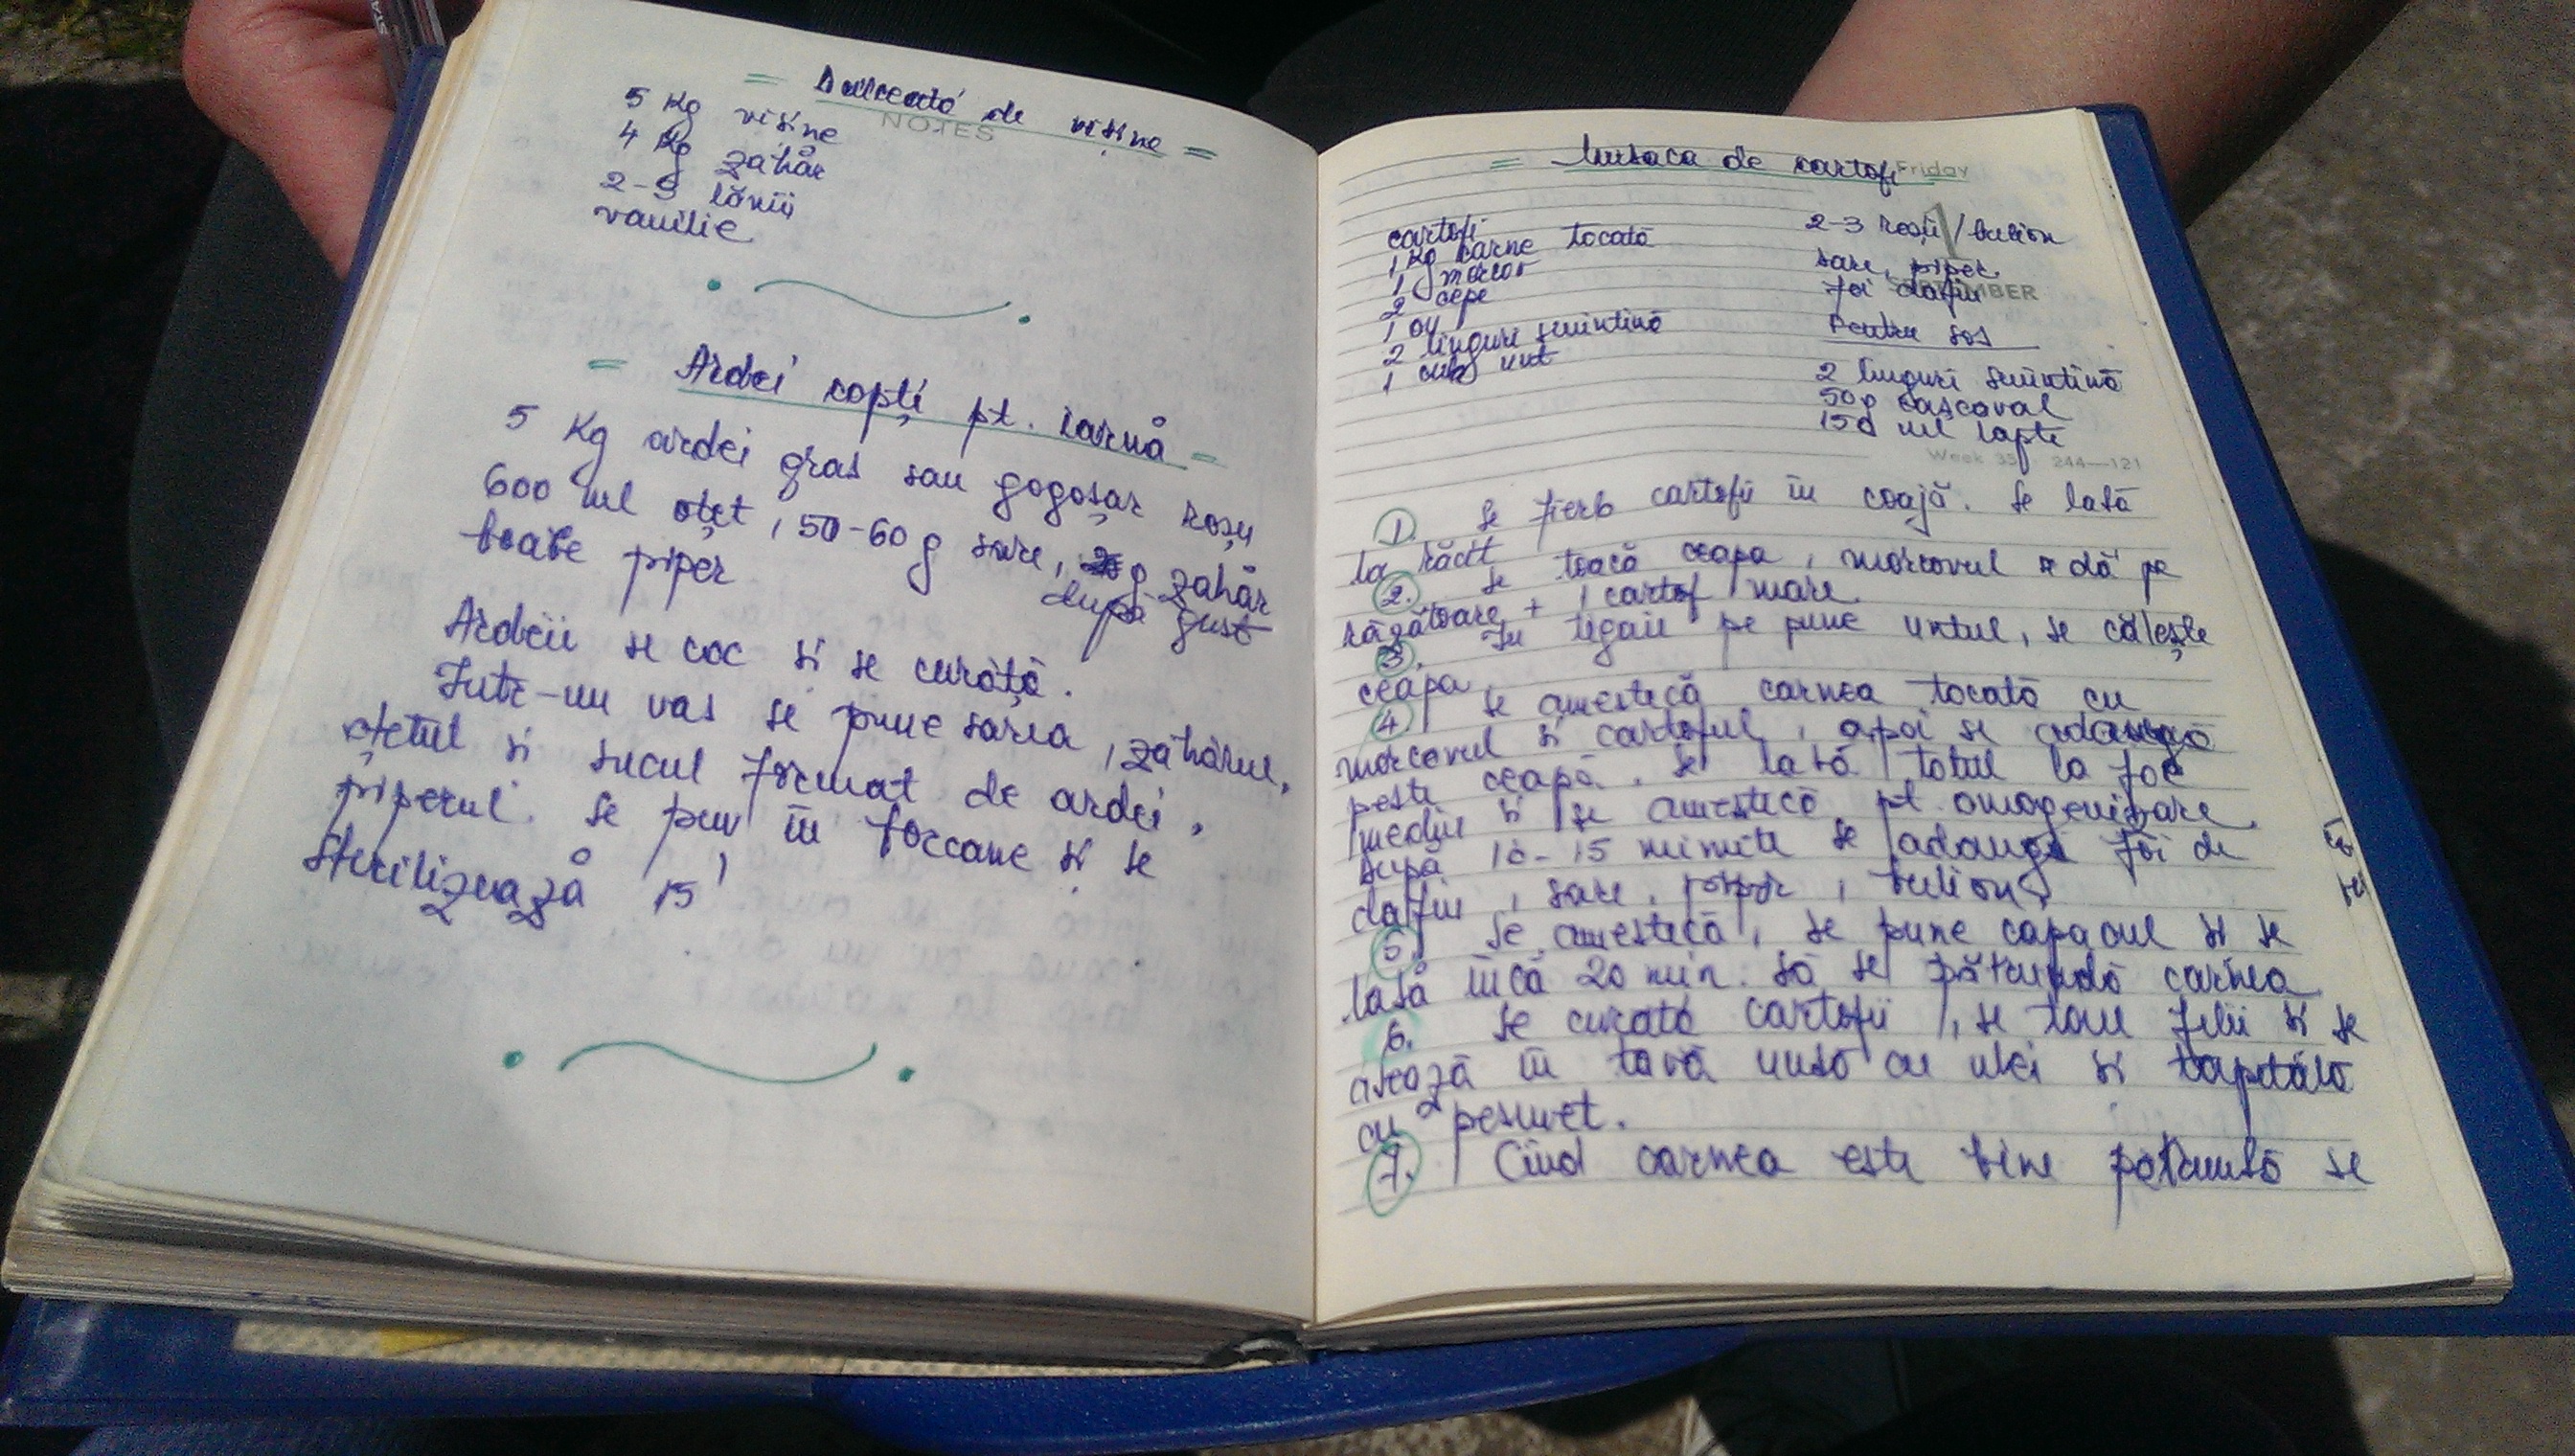 = Dulceată de vișine =
NOTES
5 Kg vișine
4 Kg zahăr
2-3 lămîi
vanilie
= Ardei copți pt. iarnă =
5 Kg ardei gras sau gogoșar roșu
600 ml oțet, 50-60 g sare, g zahăr
după gust
boabe piper
Ardeii se coc și se curăță.
Într-un vas se pune sarea, zahărul,
oțetul și sucul format de ardei,
piperul. Se pun în borcane și se
sterilizează 15'
= Musaca de cartofi =
Friday
1
SEPTEMBER
cartofi
1 Kg carne tocată
1 morcov
2 cepe
1 ou
2 linguri smîntînă
1 cub unt
2-3 roșii / bulion
sare, piper
foi dafin
Pentru sos
2 linguri smîntînă
50g cașcaval
150 ml lapte
Week 35 244—121
1. Se fierb cartofii în coajă. Se lasă
la răcit
2. Se toacă ceapa, morcovul se dă pe
răzătoare + 1 cartof mare
3. În tigaie pe pune untul, se călește
ceapa
4. Se amestecă carnea tocată cu
morcovul și cartoful, apoi se adaugă
peste ceapă. Se lasă totul la foc
mediu și se amestecă pt. omogenizare
După 10-15 minute se adaugă foi de
dafin, sare, piper, bulion
5. Se amestecă, se pune capacul și se
lasă încă 20 min. să se pătrundă carnea
6. Se curăță cartofii, se taie felii și se
așează în tavă unsă cu ulei și tapetată
cu pesmet.
7. Cînd carnea este bine pătrunsă se